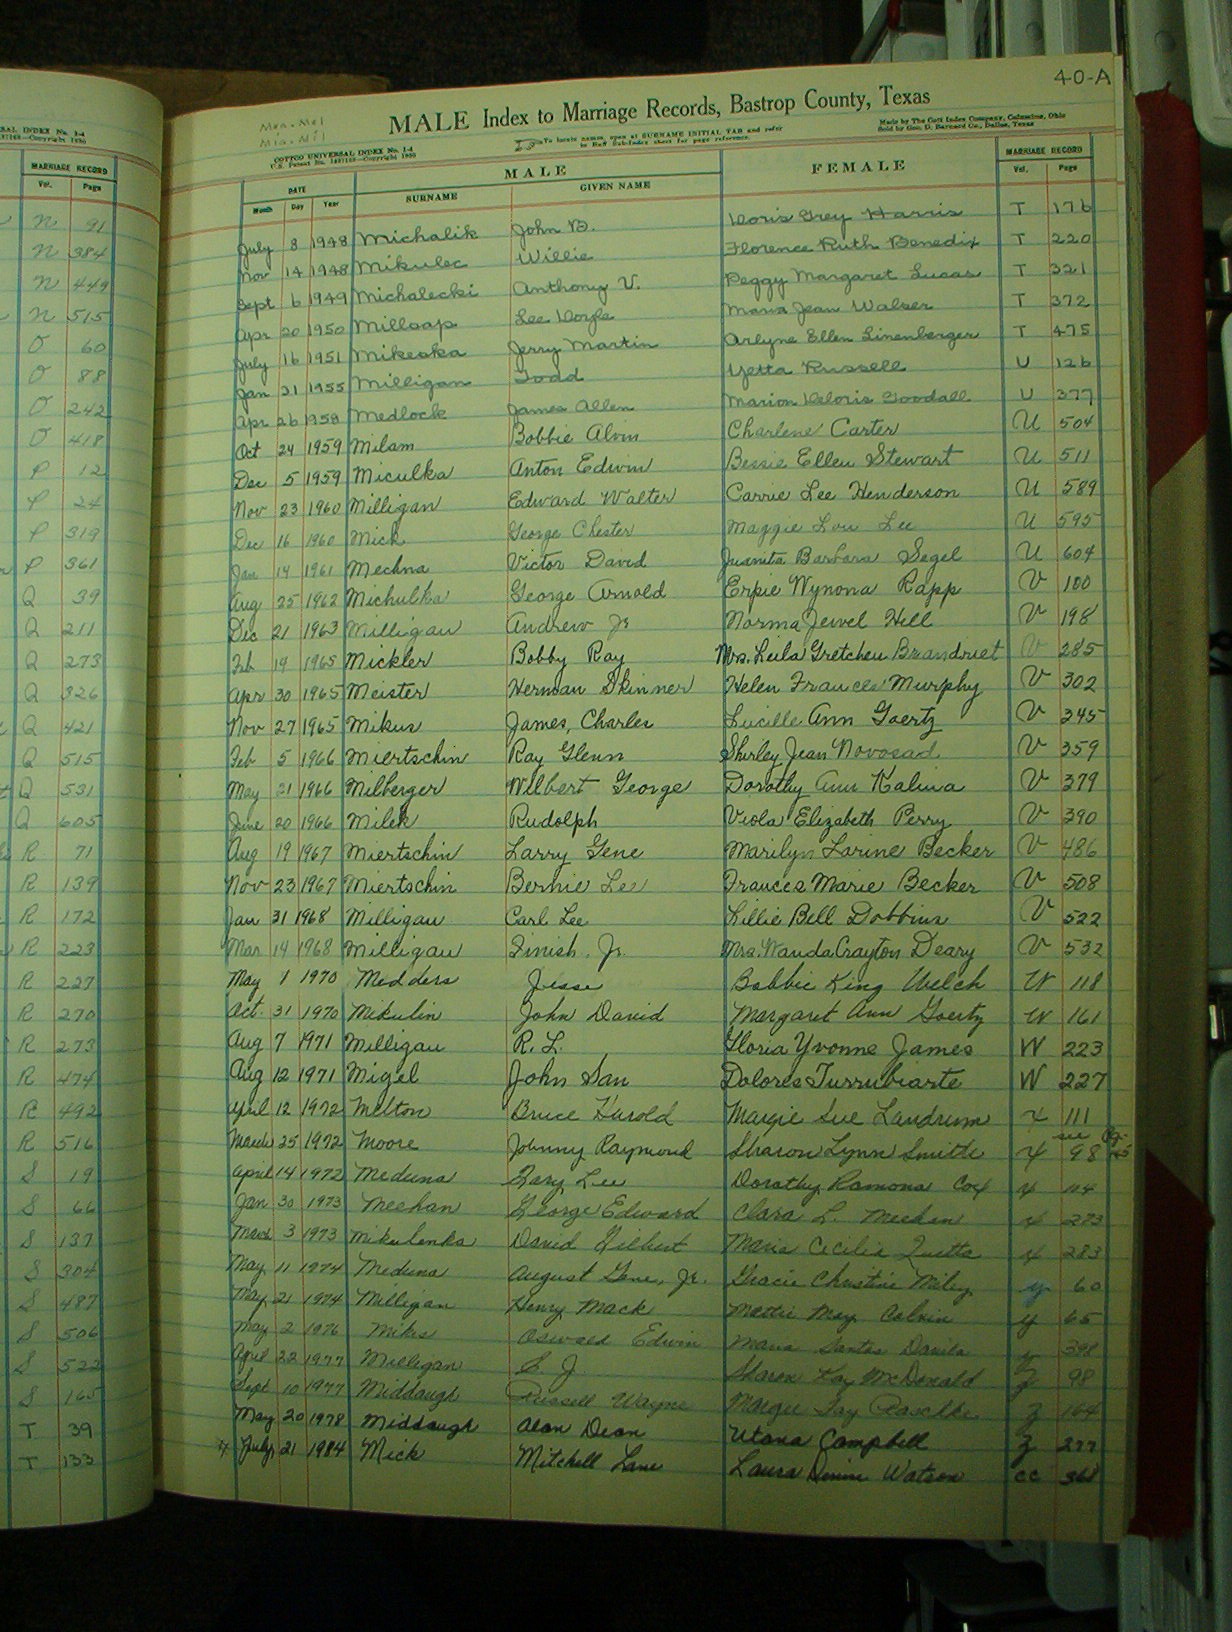 SAL INDEX No. 1-4
MARRIAGE RECORD
Vol. Page
N 91
N 384
N 449
N 515
O 60
O 88
O 242
O 418
P 12
P 24
P 319
P 361
Q 39
Q 211
Q 273
Q 326
Q 421
Q 515
Q 531
Q 605
R 71
R 139
R 172
R 223
R 227
R 270
R 273
R 474
R 492
R 516
S 19
S 66
S 137
S 304
S 487
S 506
S 522
S 165
T 39
T 133
40-A
MALE Index to Marriage Records, Bastrop County, Texas
COTTCO UNIVERSAL INDEX No. 1-4
To locate names, open at SURNAME INITIAL TAB and refer
Made by The Cott Index Company, Columbus, Ohio
Sold by Geo. D. Barnard Co., Dallas, Texas
DATE MALE FEMALE MARRIAGE RECORD
Month Day Year SURNAME GIVEN NAME Vol. Page
July 8 1948 Michalik John B. Doris Grey Harris T 176
Nov 14 1948 Mikulec Willie Florence Ruth Benedix T 220
Sept 6 1949 Michalecki Anthony V. Peggy Margaret Lucas T 321
Apr 20 1950 Millsap Lee Doyle Jean Walser T 372
July 16 1951 Mikeska Jerry Martin Arlyne Ellen Linenberger T 475
Jan 21 1955 Milligan Todd Yetta Russell U 126
Apr 26 1958 Medlock James Allen Marion Deloris Goodall U 377
Oct 24 1959 Milam Bobbie Alvin Charlene Carter U 504
Dec 5 1959 Miculka Anton Edwin Bessie Ellen Stewart U 511
Nov 23 1960 Milligan Edward Walter Carrie Lee Henderson U 589
Dec 16 1960 Mick George Chester Maggie Lou Lee U 595
Jan 14 1961 Mechna Victor David Juanita Barbara Segel U 604
Aug 25 1962 Michulka George Arnold Erpie Wynona Rapp V 100
Dec 21 1963 Milligan Andrew Jr Norma Jewel Hill V 198
Feb 19 1965 Mickler Bobby Ray Mrs. Leila Gretchen Brandriet V 285
Apr 30 1965 Meister Herman Skinner Helen Frances Murphy V 302
Nov 27 1965 Mikus James, Charles Lucille Ann Goertz V 345
Feb 5 1966 Miertschin Ray Glenn Shirley Jean Novosad V 359
May 21 1966 Milberger Wilbert George Dorothy Ann Kalina V 379
June 20 1966 Milek Rudolph Viola Elizabeth Perry V 390
Aug 19 1967 Miertschin Larry Gene Marilyn Larine Becker V 486
Nov 23 1967 Miertschin Bernie Lee Frances Marie Becker V 508
Jan 31 1968 Milligan Carl Lee Lillie Bell Dobbins V 522
Mar 14 1968 Milligan Finish Jr. Mrs. Wanda Crayton Deary V 532
May 1 1970 Medders Jesse Bobbie King Welch W 118
Oct. 31 1970 Mikulin John David Margaret Ann Goertz W 161
Aug 7 1971 Milligan R. L. Gloria Yvonne James W 223
Aug 12 1971 Migel John San Dolores Turrubiarte W 227
April 12 1972 Melton Bruce Harold Margie Sue Landrum X 111
March 25 1972 Moore Johnny Raymond Sharon Lynn Smith X 98 see Pg.
April 14 1972 Meduna Gary Lee Dorothy Ramona Cox X 114
Jan 30 1973 Meehan George Edward Clara L. Meehan X 273
March 3 1973 Mikulenka David Gilbert Maria Cecilia X 283
May 11 1974 Meduna August Gene, Jr. Gracie Christine Miley Y 60
May 21 1974 Milligan Henry Mack Mattie May Colvin Y 65
May 2 1976 Mikes Oswald Edwin Maria Santos Davila Y 398
April 22 1977 Milligan L J. Sharon Kay McDonald Z 98
Sept 10 1977 Middaugh Russell Wayne Margie Fay Raschke Z 164
May 20 1978 Middaugh Alan Dean Utana Campbell Z 277
July 21 1984 Mick Mitchell Lane Laura Denise Watson CC 368